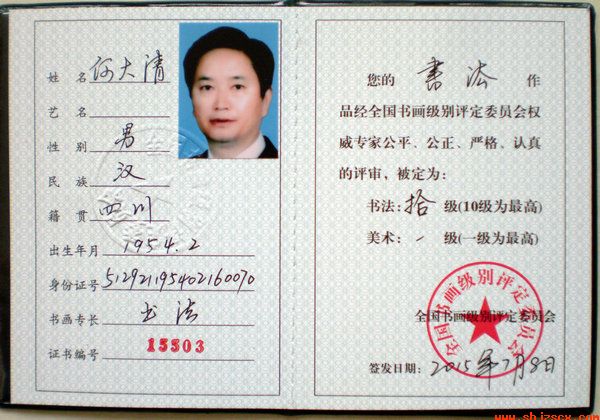 姓 名 何大清
艺 名
性 别 男
民 族 汉
籍 贯 四川
出生年月 1954.2
身份证号 512921195402160070
书画专长 书法
证书编号 15503
您的 书法 作
品经全国书画级别评定委员会权
威专家公平、公正、严格、认真
的评审，被定为：
书法：拾 级(10级为最高)
美术： 级(一级为最高)
全国书画级别评定委员会
全国书画级别评定委员会
签发日期：2015年7月8日
www.shjzscx.com